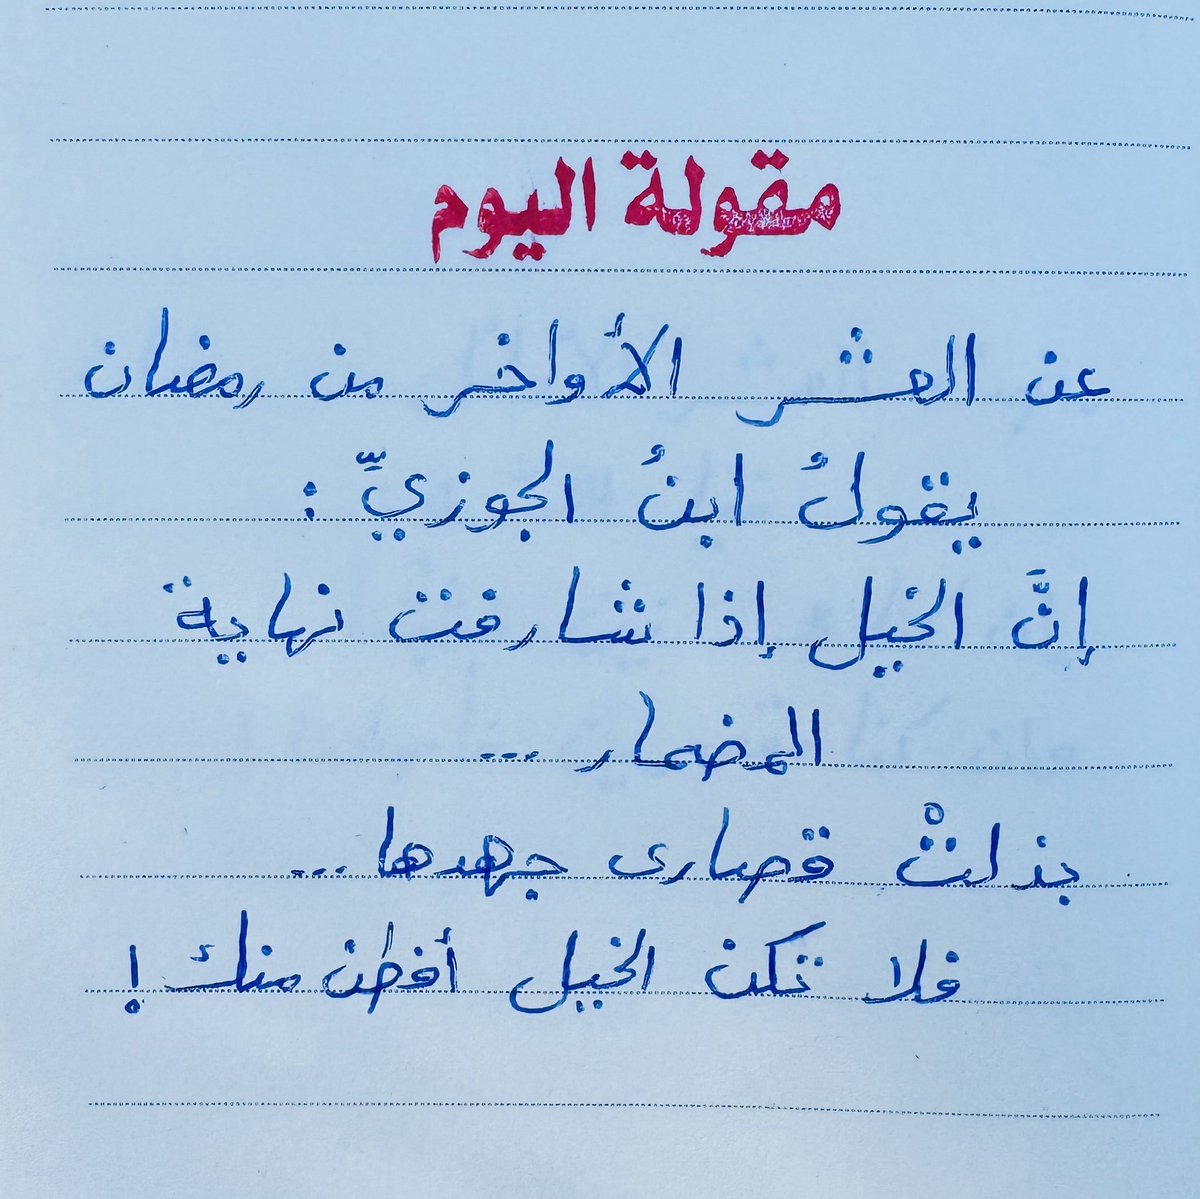 مقولة اليوم
عن العشر الأواخر من رمضان
يقولُ ابنُ الجوزيِّ :
إنَّ الخيل إذا شارفت نهاية
المضمار ...
بذلتْ قصارى جهدها ...
فلا تكن الخيل أفطن منك !